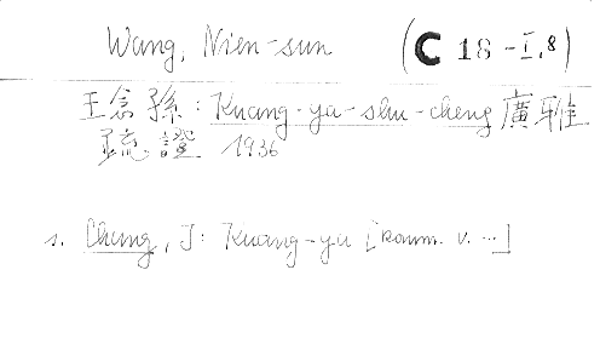 Wang, Nien-sun (C 18 - I,8)
王念孫: Kuang-ya-shu-cheng 廣雅
疏證 1936
s. Chang, I: Kuang-ya [komm. v. ...]